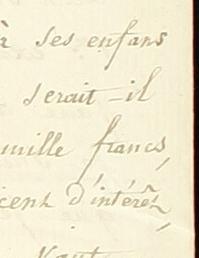 à ses enfans
serait-il
mille francs,
cent d'intérêt,